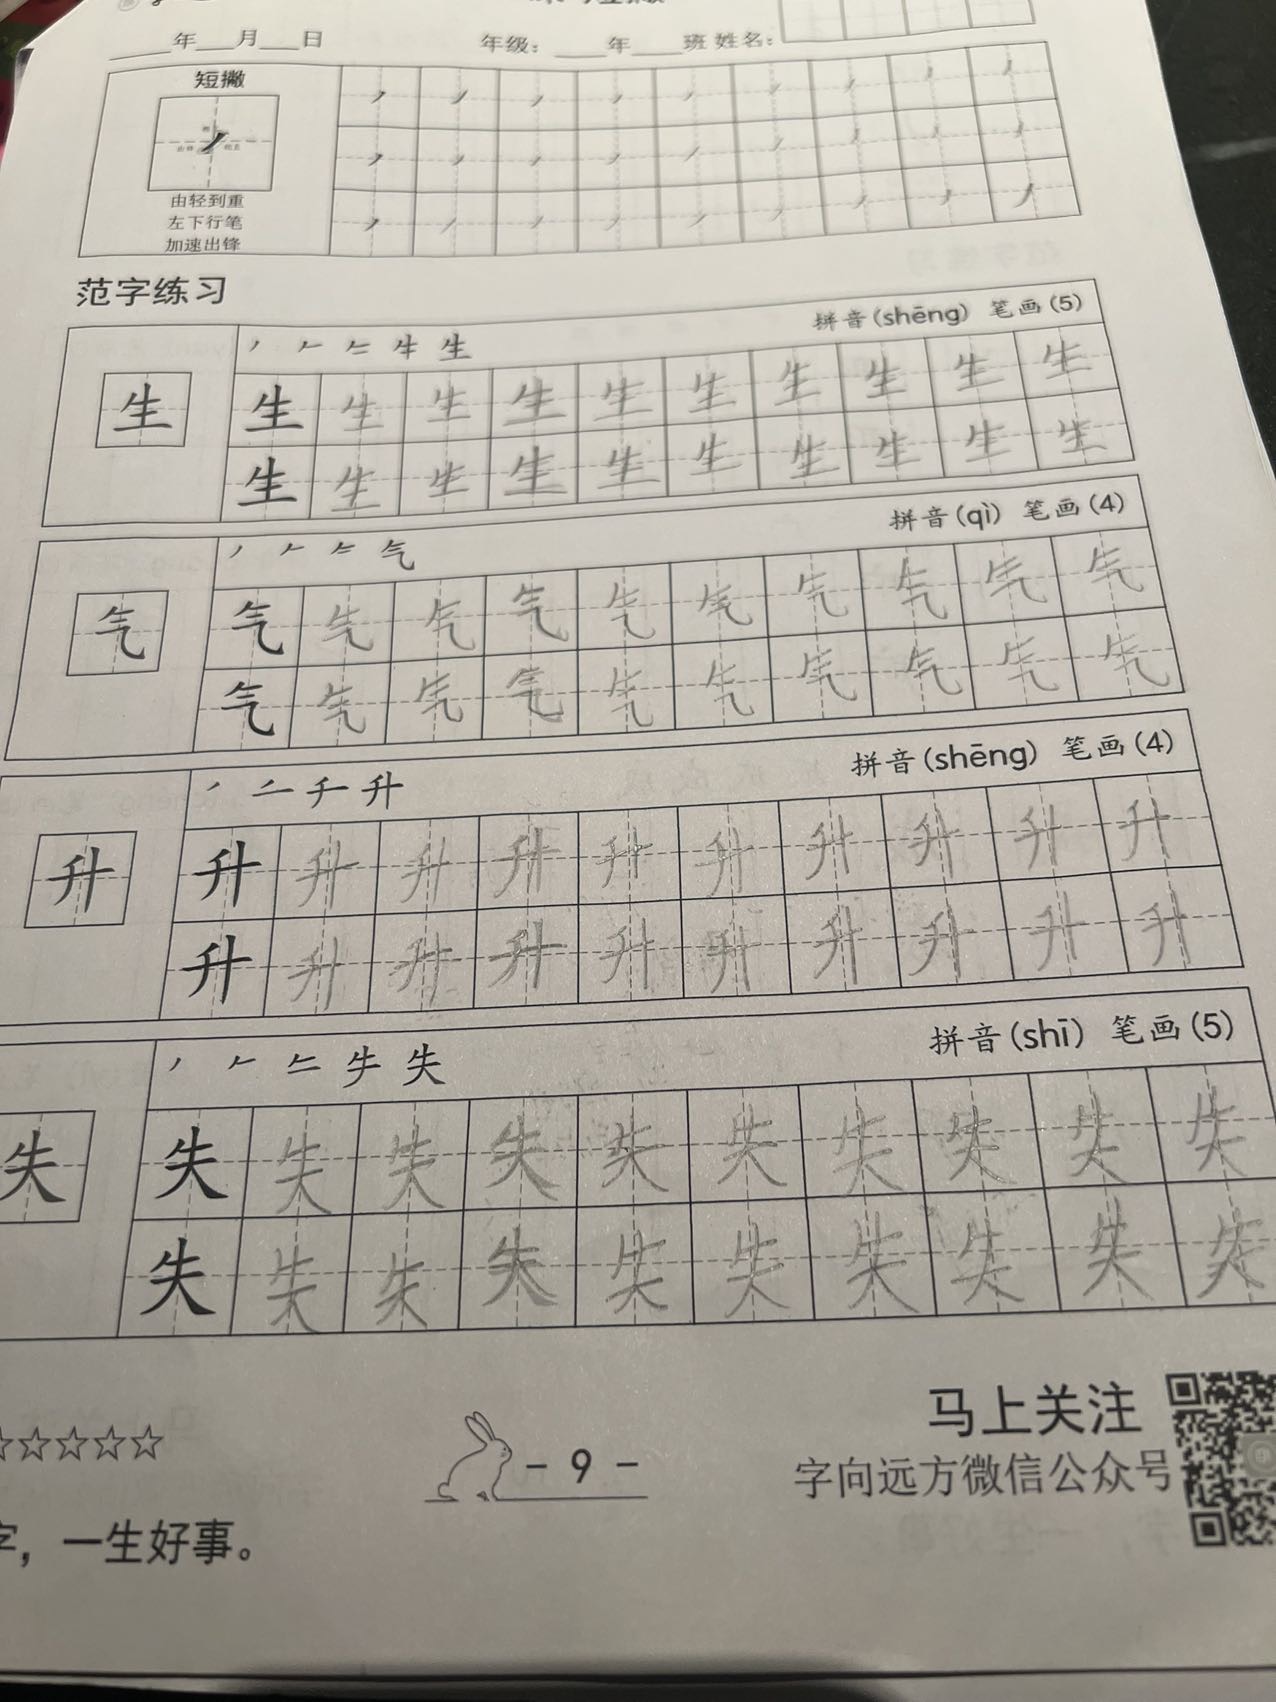 年 月 日 年级： 年 班 姓名：
短撇
由轻到重
左下行笔
加速出锋
范字练习
拼音(shēng) 笔画(5)
生
生 生 生 生 生 生 生 生 生 生
生 生 生 生 生 生 生 生 生 生
生
拼音(qì) 笔画(4)
气
气 气 气 气 气 气 气 气 气 气
气 气 气 气 气 气 气 气 气 气
气
拼音(shēng) 笔画(4)
升
升 升 升 升 升 升 升 升 升 升
升 升 升 升 升 升 升 升 升 升
升
拼音(shī) 笔画(5)
失
失 失 失 失 失 失 失 失 失 失
失 失 失 失 失 失 失 失 失 失
失
☆☆☆☆
- 9 -
马上关注
字向远方微信公众号
字，一生好事。